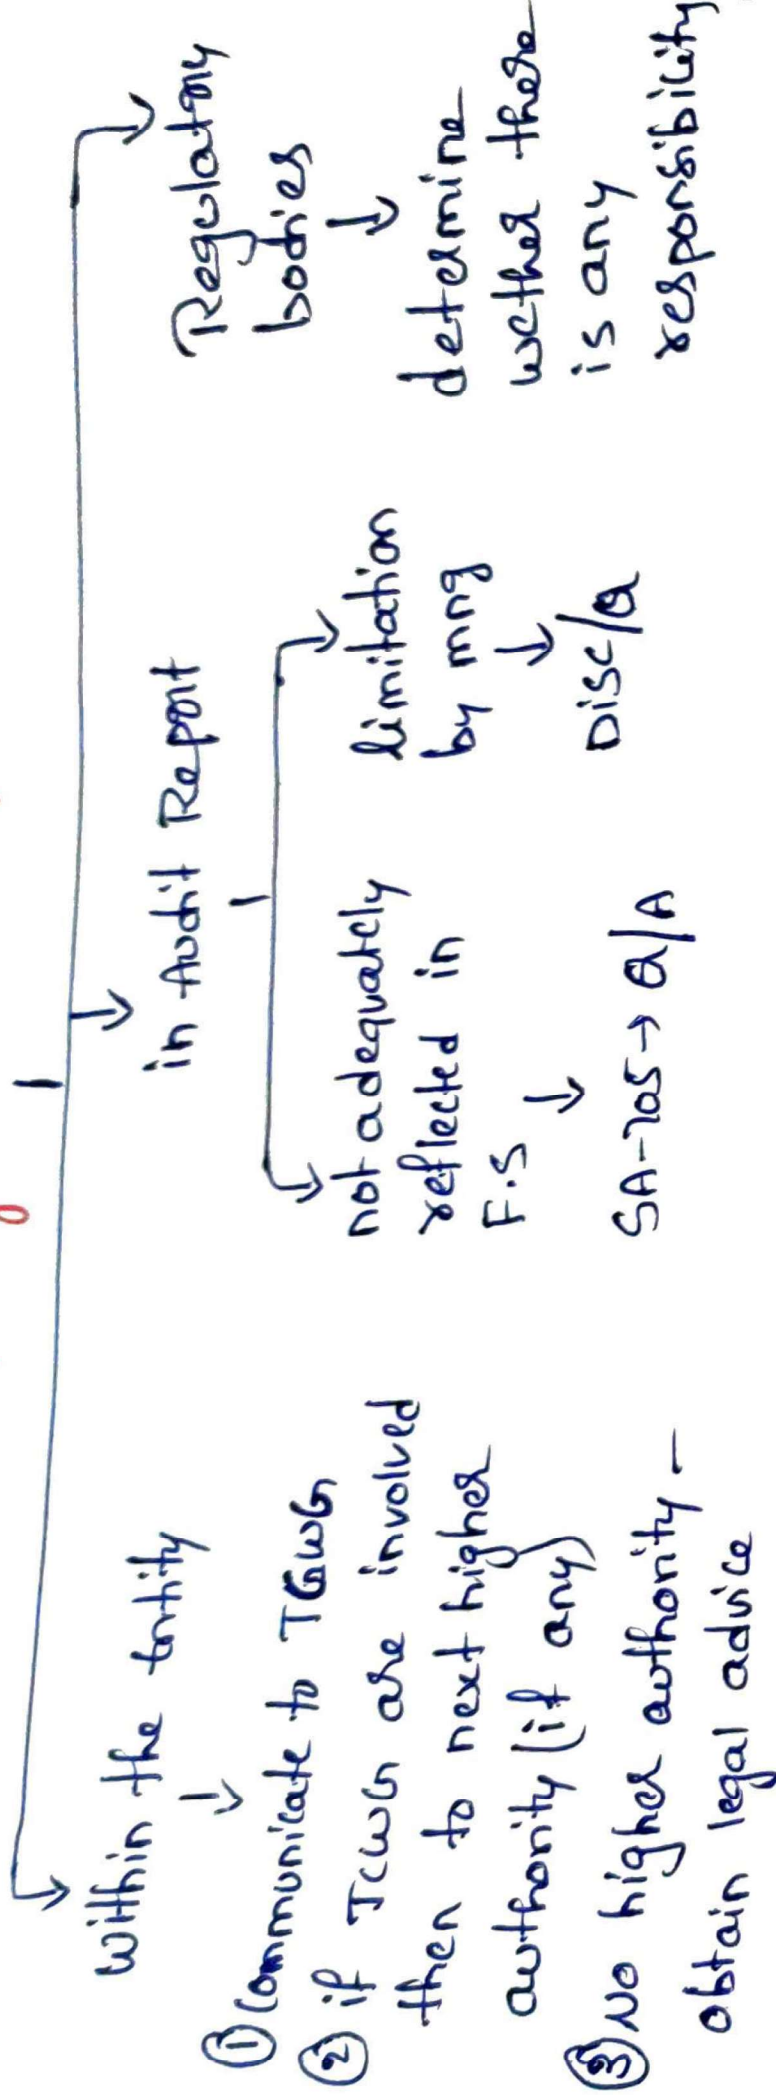 Within the Entity
① Communicate to TGWG
② if TCWG are involved
then to next higher
authority (if any)
③ No higher authority -
obtain legal advice
in Audit Report
not adequately
reflected in
F.S
SA-705 → Q/A
limitation
by mng
Disc/Q
Regulatory
bodies
determine
wether there
is any
responsibility